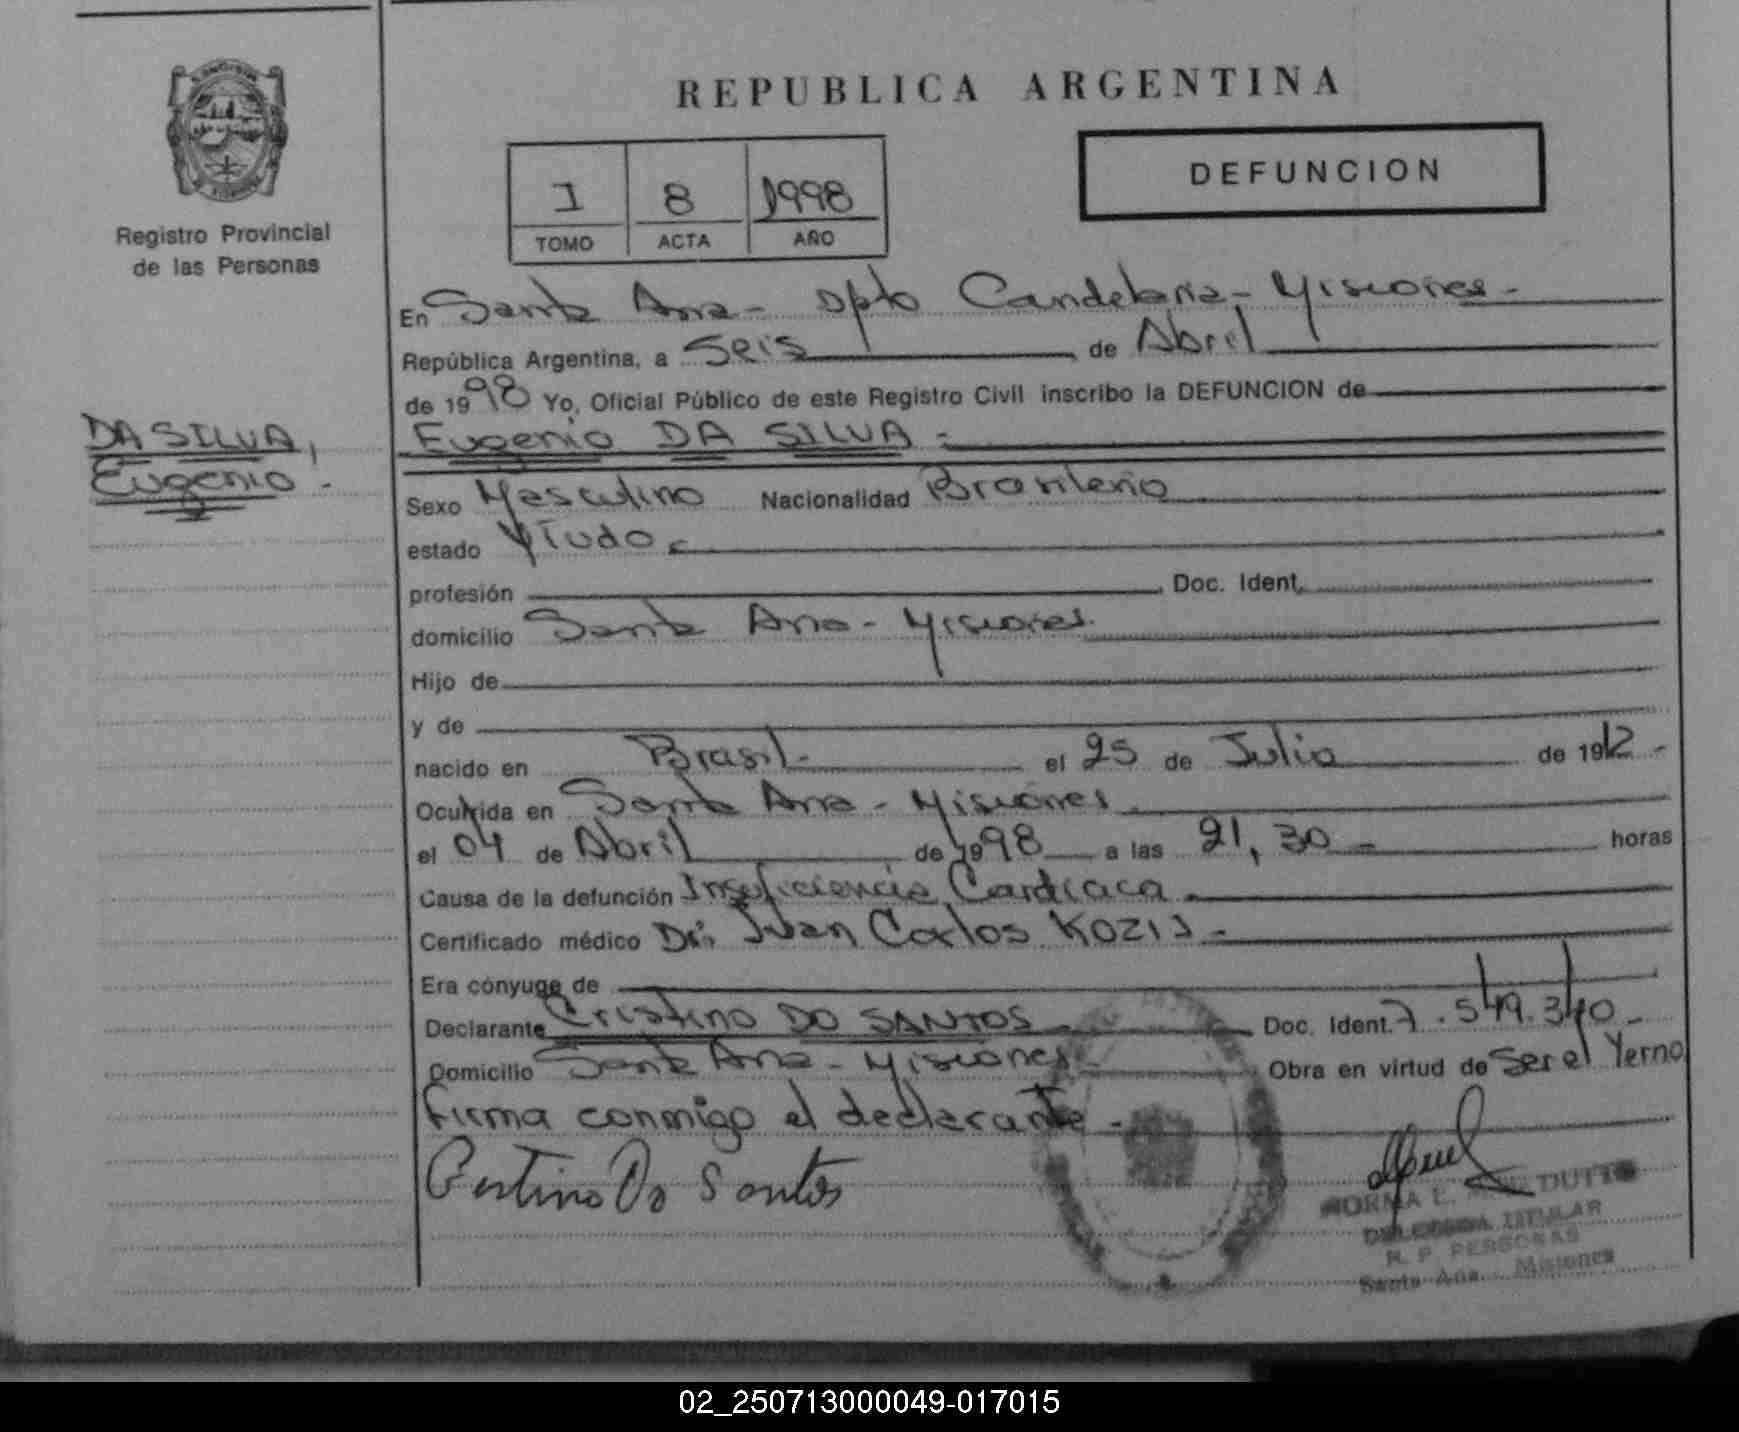 REPUBLICA ARGENTINA
DEFUNCION
I 8 1998
TOMO ACTA AÑO
Registro Provincial
de las Personas
En Santa Ana - Dpto Candelaria - Misiones -
República Argentina, a Seis de Abril
de 1998 Yo, Oficial Público de este Registro Civil inscribo la DEFUNCION de
DA SILVA,
Eugenio -
Eugenio DA SILVA -
Sexo Masculino Nacionalidad Brasileña
estado Viudo -
profesión Doc. Ident.
domicilio Santa Ana - Misiones.
Hijo de
y de
nacido en Brasil - el 25 de Julio de 1912 -
Ocurrida en Santa Ana - Misiones
el 04 de Abril de 1998 a las 21,30 - horas
Causa de la defunción Insuficiencia Cardiaca -
Certificado médico Dr. Juan Carlos KOZIJ -
Era cónyuge de
Declarante Cristino DO SANTOS - Doc. Ident. 7.549.340 -
Domicilio Santa Ana - Misiones - Obra en virtud de Ser el Yerno
Firma conmigo el declarante -
Cristino Do Santos
NORMA E. DUTTO
DELEGADA TITULAR
R. P. PERSONAS
Santa Ana - Misiones
02_250713000049-017015